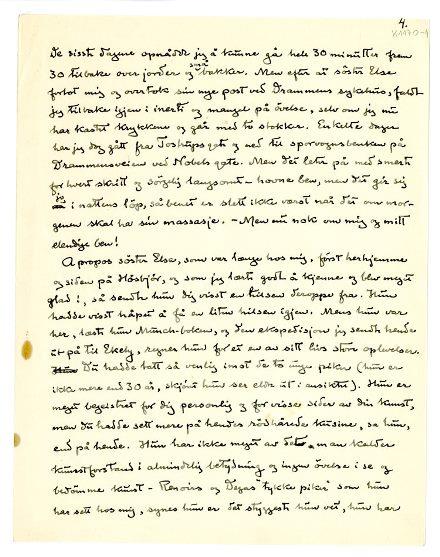 4.
K1170-1
De sisste dagene opnådde jeg å kunne gå hele 30 minutter frem
30 tilbake over jorder og også bakker. Men efter at søster Else
forlot mig og overtok sin nye post ved Drammens sykehus, faldt
jeg tilbake igjen i inerti og mangel på øvelse, selv om jeg nu
har kastet krykkene og går med to stokker. Enkelte dager
har jeg dog gått fra Tostrups gate og ned til sporvognsbenken på
Drammensveien ved Nobels gate. Men det letet på med smerte
for hvert skritt og sørgelig langsomt – hovne ben, men det gir sig
jo i nattens løp, så benet er slett ikke værst når det om mor-
genen skal ha sin massasje. – Men nu nok om mig og mitt
elendige ben!
A propos søster Else, som var længe hos mig, først herhjemme
og siden på Høsbjør, og som jeg lærte godt å kjenne og blev meget
glad i, så sendte hun dig visst en hilsen deroppe fra. Hun
hadde visst håpet å få en liten hilsen igjen. Mens hun var
her, læste hun Munch-boken, og den ekspedisjon jeg sendte hende
ut på til Ekely, regner hun for et en av sitt livs store oplevelser.
Du hadde tatt så venlig imot de to unge piker (hun er
ikke mere end 30 år, skjønt hun ser eldre ut i ansiktet). Hun er
meget begeistret for dig personlig og for visse sider av din kunst,
men du hadde sett mere på hendes rødhårede kusine, sa hun,
end på hende. Hun har ikke meget av det, man kalder
kunstforstand i almindelig betydning og ingen øvelse i se og
bedømme kunst – Renoirs og Degas' tykke piker som hun
har sett hos mig, synes hun er det styggeste hun vet, hun har